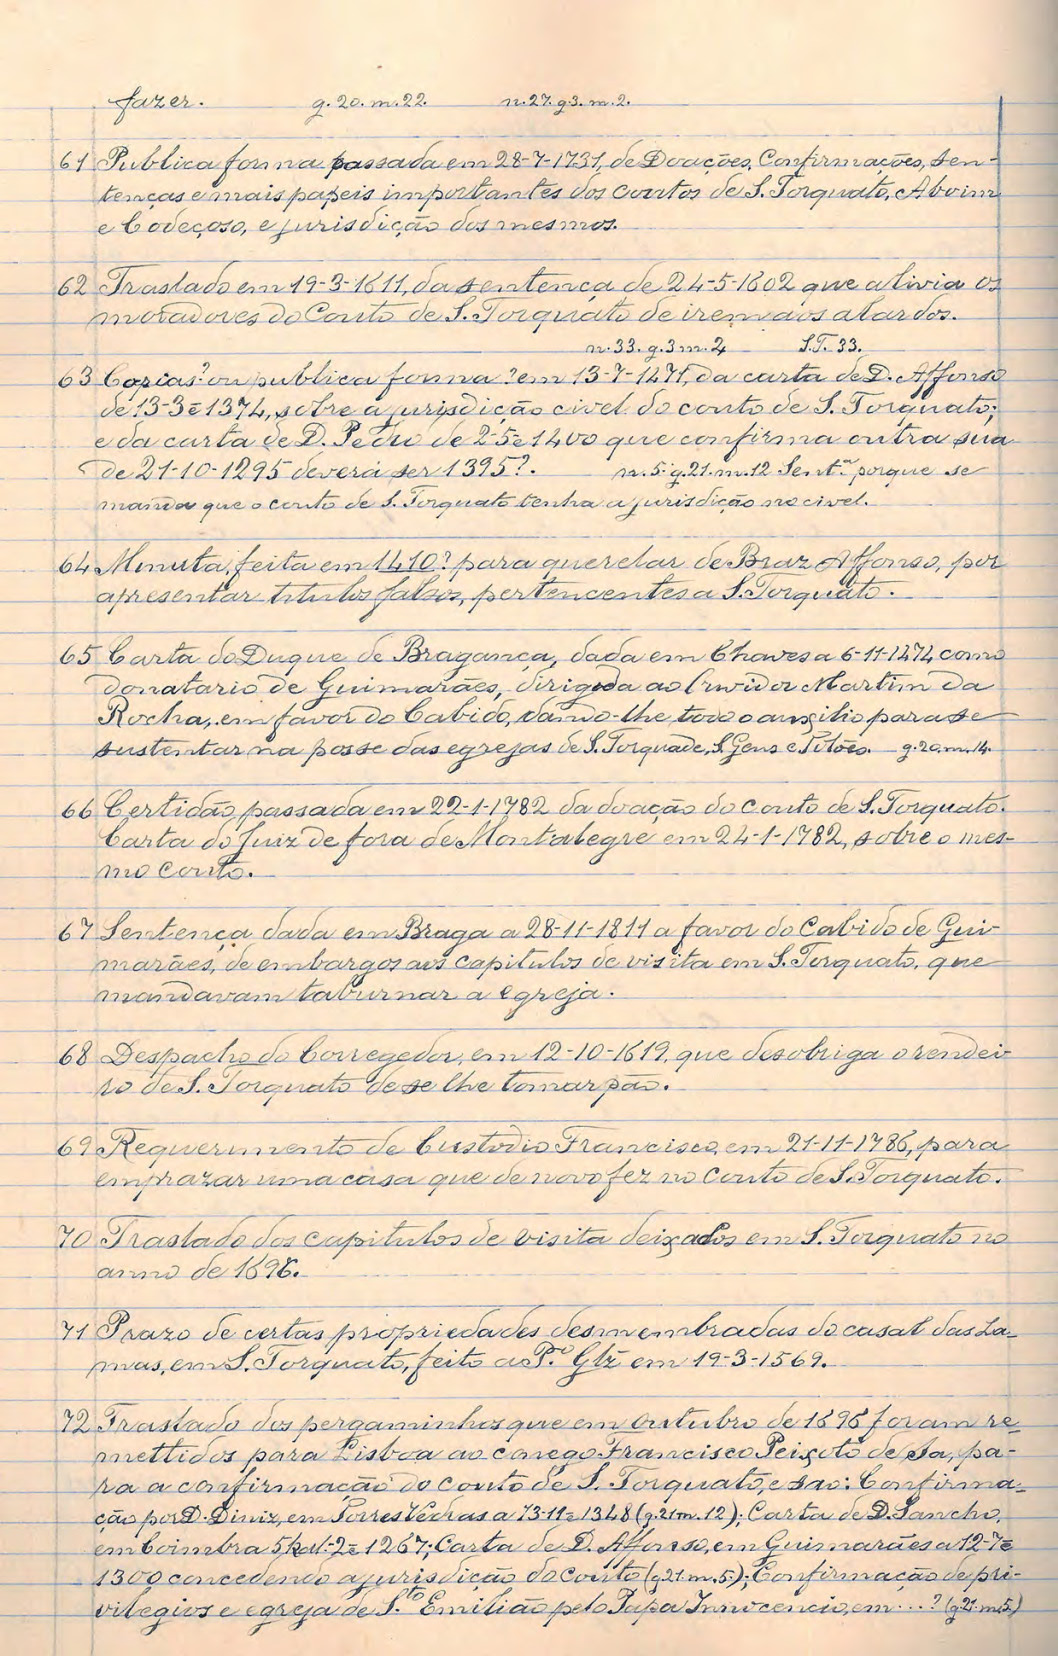 fazer. g. 20. m. 22. n. 27. g. 3. m. 2.
61 Publica forma passada em 28-7-1731, de Doações, Confirmações, Sen-
tenças e mais papeis importantes dos coutos de S. Torquato, Aboim
e Codeçoso, e jurisdição dos mesmos.
62 Traslado em 19-3-1611, da sentença de 24-5-1602 que alivia os
moradores do Couto de S. Torquato de irem aos alardos.
n. 33. g. 3 m. 2 S.T. 33.
63 Copias? ou publica forma? em 13-7-1471, da carta de D. Affonso
de 13-3=1374, sobre a jurisdição civel do couto de S. Torquato;
e da carta de D. Pedro de 2-5=1400 que confirma outra sua
de 21-10-1295 deverá ser 1395?. n. 5. g. 21. m. 12 Sentª porque se
manda que o couto de S. Torquato tenha a jurisdição no civel.
64 Minuta, feita em 1410? para querelar de Braz Affonso, por
apresentar titulos falsos, pertencentes a S. Torquato.
65 Carta do Duque de Bragança, dada em Chaves a 6-11-1474 como
donatario de Guimarães, dirigida ao Ouvidor Martim da
Rocha, em favor do Cabido, dando-lhe todo o auxilio para se
sustentar na posse das egrejas de S. Torquade, S. Gens e Pitões. g. 20. m. 14.
66 Certidão, passada em 22-1-1782 da doação do Couto de S. Torquato.
Carta do Juiz de fora de Montalegre em 24-1-1782, sobre o mes-
mo Couto.
67 Sentença dada em Braga a 28-11-1811 a favor do Cabido de Gui-
marães, de embargos aos capitulos de visita em S. Torquato, que
mandavam taburnar a egreja.
68 Despacho do Corregedor, em 12-10-1619, que desobriga o rendei-
ro de S. Torquato de se lhe tomar pão.
69 Requerimento de Custodio Francisco, em 21-11-1786, para
emprazar uma casa que de novo fez no Couto de S. Torquato.
70 Traslado dos capitulos de visita deixados em S. Torquato no
anno de 1696.
71 Prazo de certas propriedades desmembradas do casal das La-
mas, em S. Torquato, feito a P.º Glz em 19-3-1569.
72 Traslado dos pergaminhos que em outubro de 1696 foram re-
mettidos para Lisboa ao conego Francisco Peixoto de Sa, pa-
ra a confirmação do couto de S. Torquato, e são: Confirma-
ção por D. Diniz, em Torres Vedras a 13-11=1348 (g. 21 m. 12); Carta de D. Sancho,
em Coimbra 5 kal.-2=1267; Carta de D. Affonso, em Guimarães a 12-7=
1300 concedendo a jurisdição do Couto (g. 21 m. 5); Confirmação de pri-
vilegios e egreja de S.to Emilião pelo Papa Innocencio, em ...? (g. 21 m. 5)